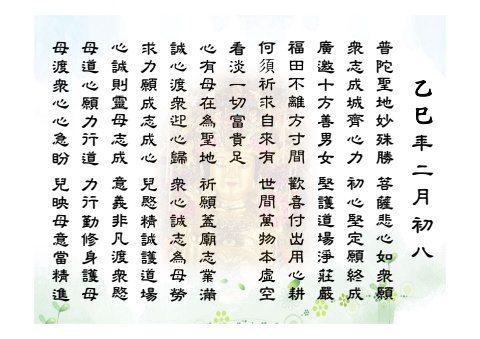 乙巳年二月初八
普陀聖地妙殊勝 菩薩悲心如眾願
眾志成城齊心力 初心堅定願終成
廣邀十方善男女 堅護道場淨莊嚴
福田不離方寸間 歡喜付出用心耕
何須祈求自來有 世間萬物本虛空
看淡一切富貴足
心有母在為聖地 祈願蓋廟志業滿
誠心渡眾迎心歸 眾心誠志為母勞
求力願成志成心 兒愍精誠護道場
心誠則靈母志成 意義非凡渡眾愍
母道心願力行道 力行勤修身護母
母渡眾心心急盼 兒映母意當精進